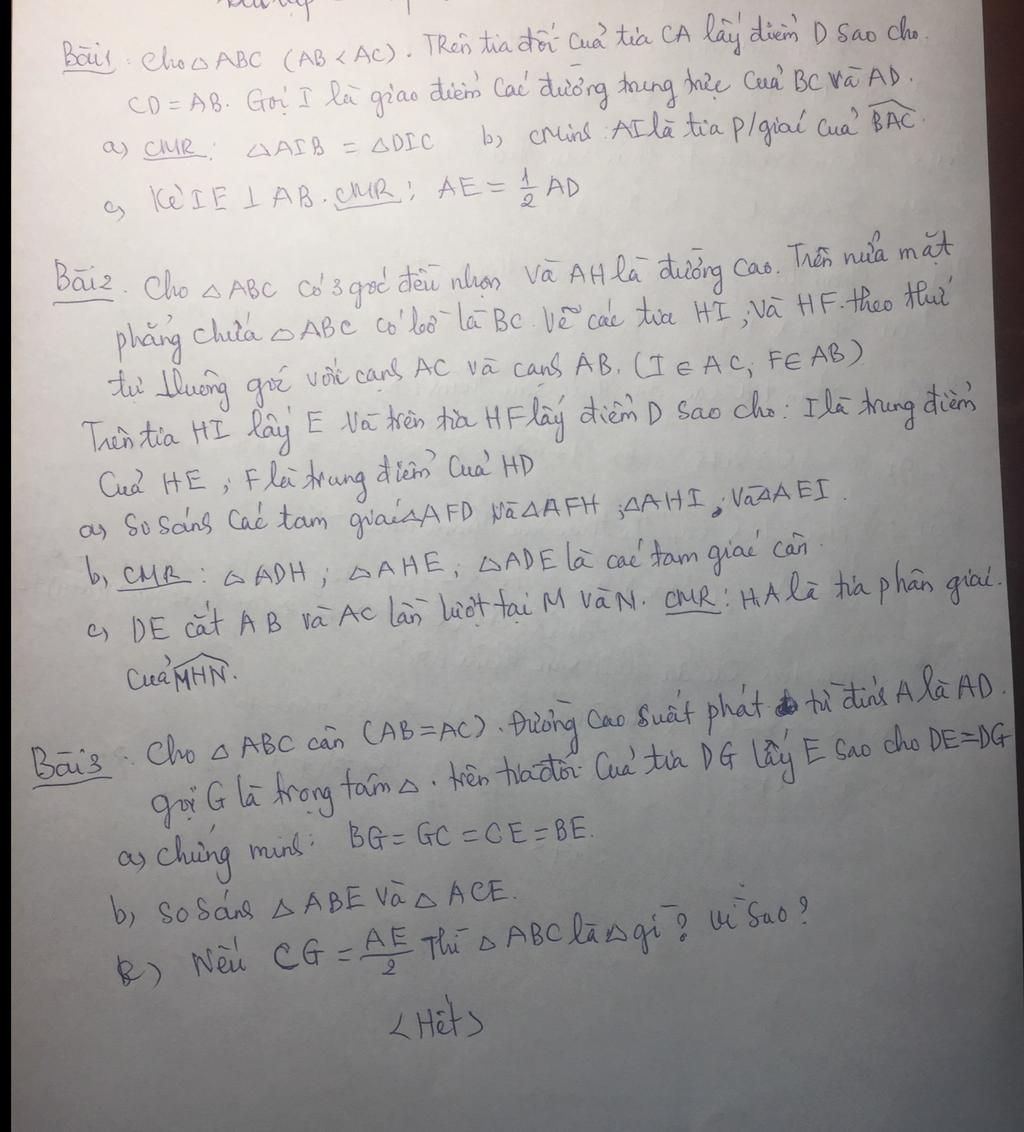 Bài1: Cho △ABC (AB < AC). Trên tia đối của tia CA lấy điểm D sao cho.
CD = AB. Gọi I là giao điểm các đường trung trực của BC và AD.
a) CMR: △AIB = △DIC b, CMinh: AI là tia p/giác của BAC.
c, Kẻ IE ⊥ AB. CMR: AE = 1/2 AD
Bài2. Cho △ABC có 3 góc đều nhọn và AH là đường cao. Trên nửa mặt
phẳng chứa △ABC có bờ là BC. Vẽ các tia HI, và HF.theo thứ
tự ⊥uông góc với cạnh AC và cạnh AB. (I ∈ AC; F∈ AB)
Trên tia HI lấy E và trên tia HF lấy điểm D sao cho: I là trung điểm
của HE; F là trung điểm của HD
a, So sánh các tam giác△AFD và △AFH; △AHI, và△AEI.
b, CMR: △ADH; △AHE; △ADE là các tam giác cân.
c, DE cắt AB và AC lần lượt tại M và N. CMR: HA là tia phân giác.
của MHN.
Bài3: Cho △ABC cân (AB=AC). Đường cao suất phát từ đỉnh A là AD.
gọi G là trọng tâm △. trên tia đối của tia DG lấy E sao cho DE=DG
a, chứng minh: BG = GC = CE = BE.
b, So sánh △ABE và △ACE.
c) Nếu CG = AE/2 Thì △ABC là△gì? Vì sao?
<Hết>